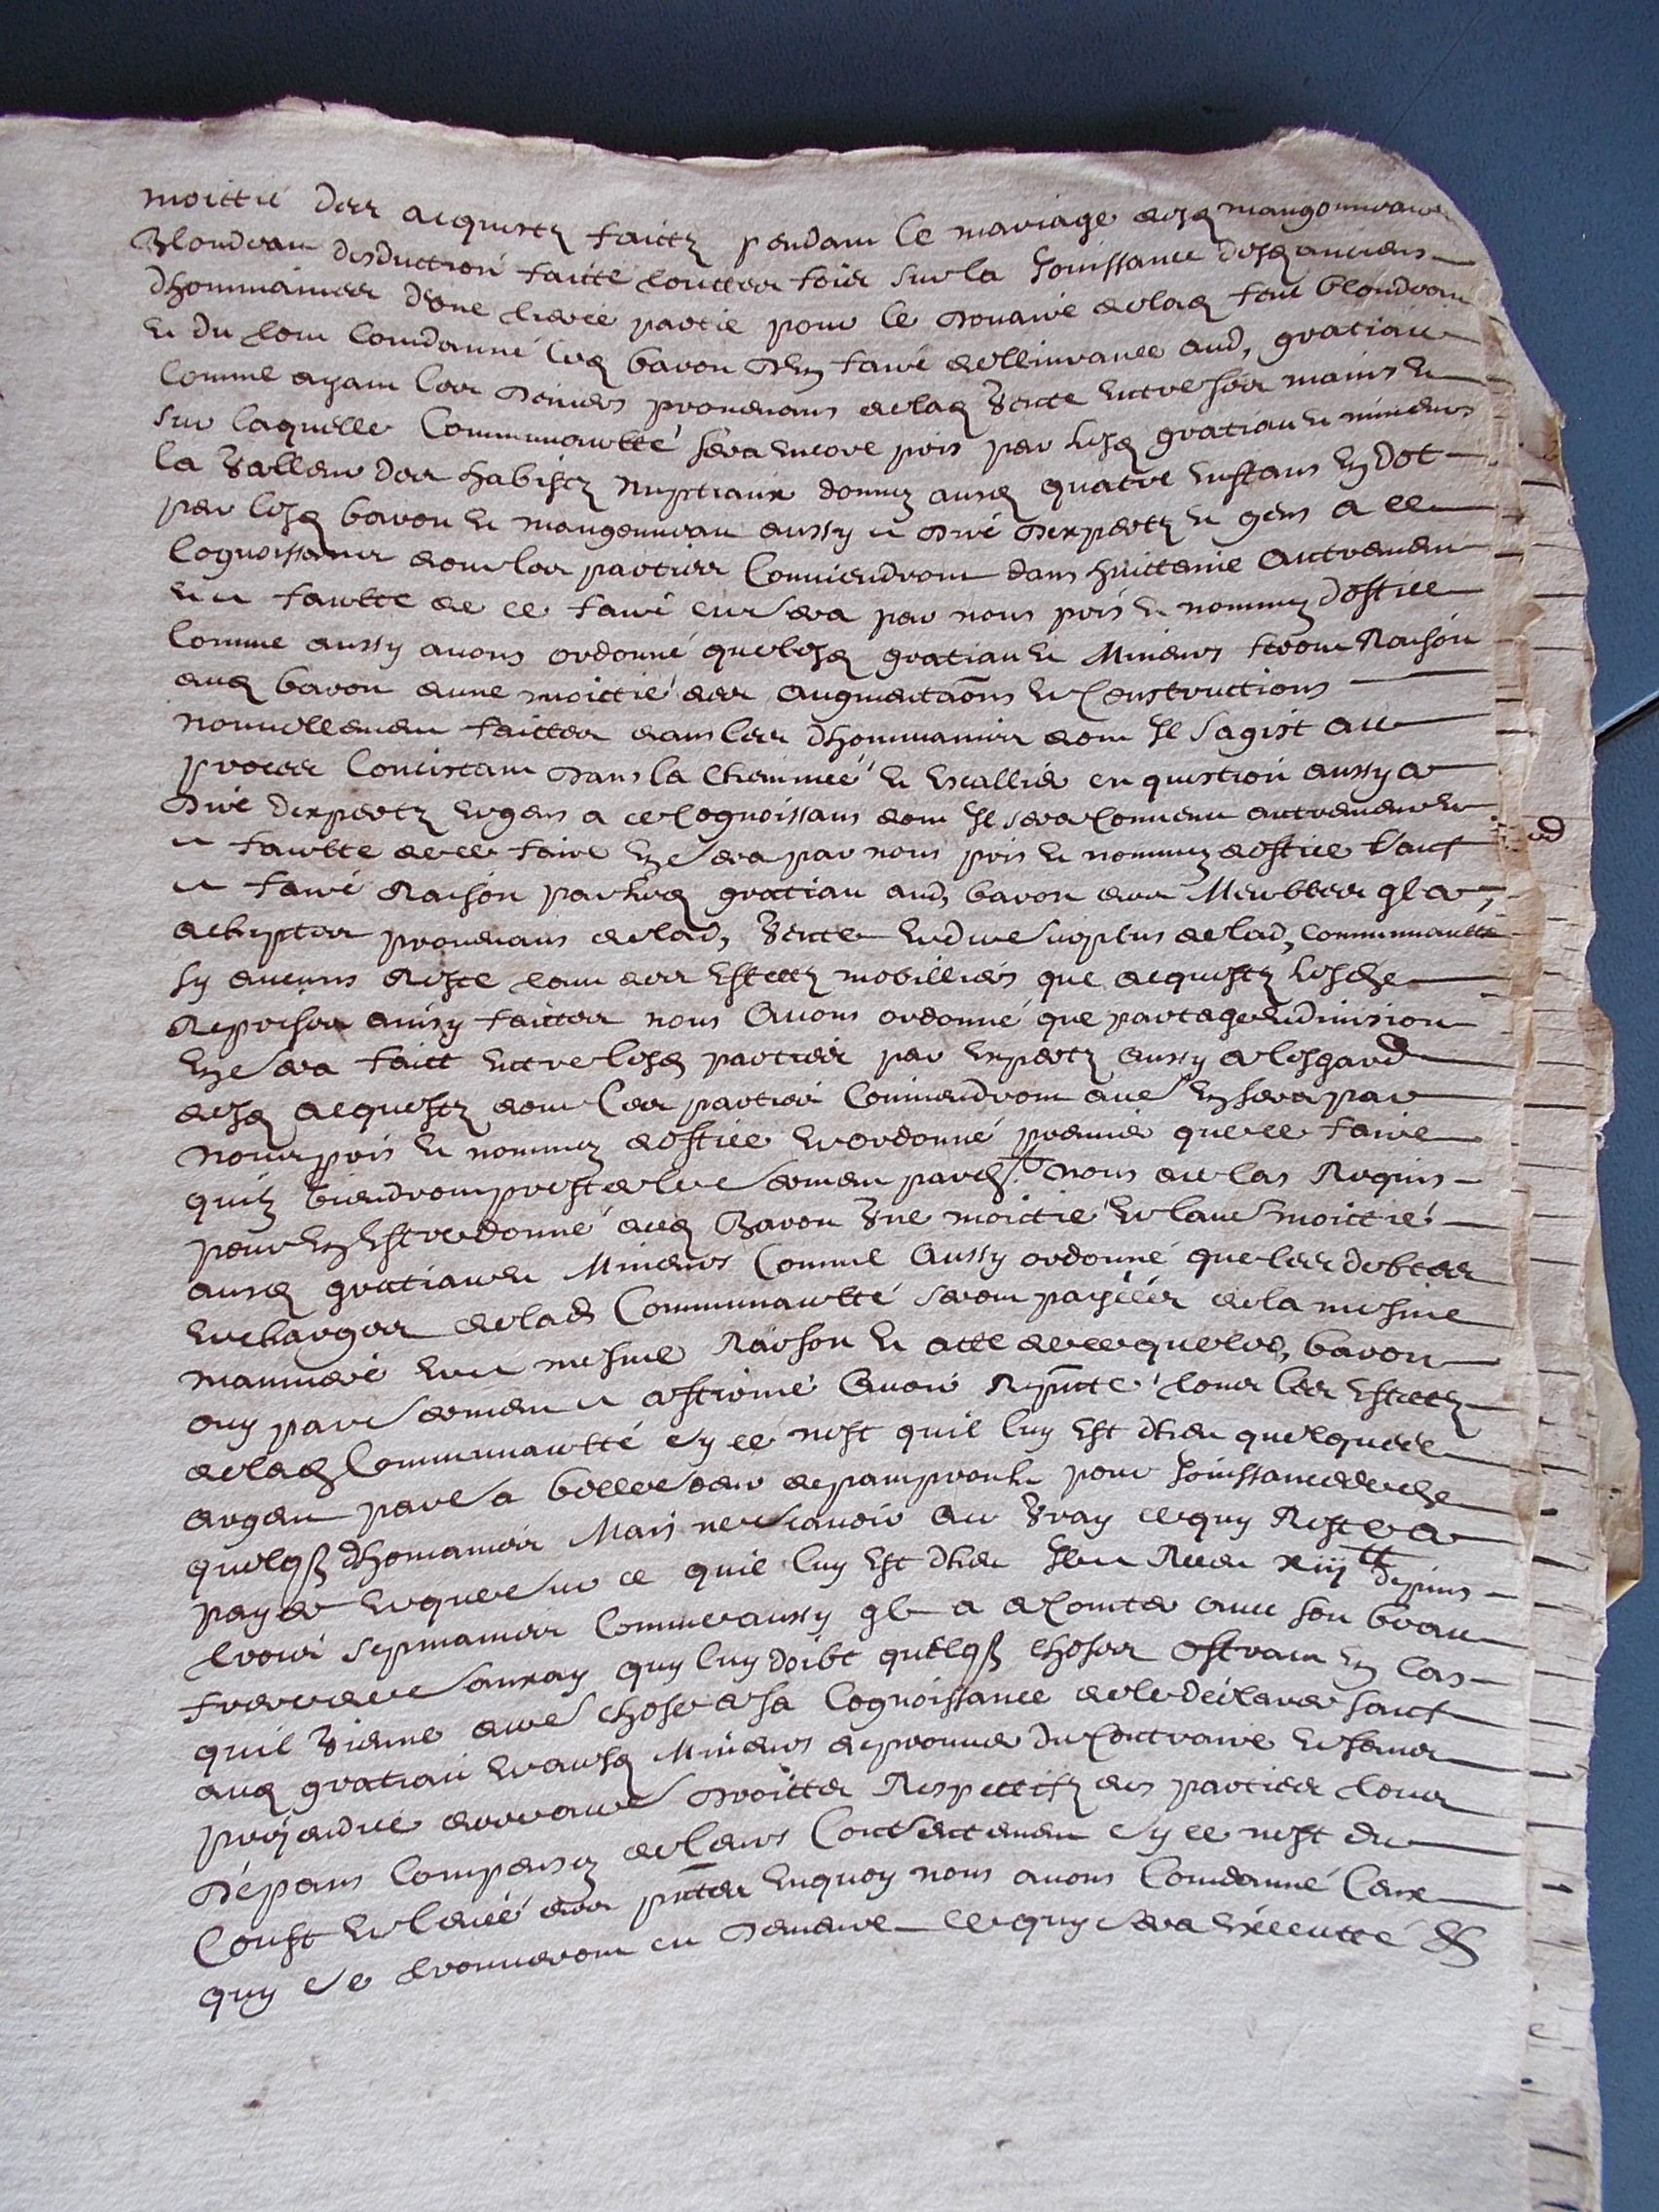 moittié des acquestz faictz pendant le mariage desd mangonneau
Blondeau desduction faitte touttes fois sur la Jouissance desd anciens
dhommaines dune tierce partie pour le douaire de lad feue blondeau
Et du tout Condanné led baron den faire dellivrance aud, gratiau
Comme ayant les deniers provenans de lad Vente Entre ses mains Et
sur laquelle Communaultté sera Encore pris par lesd gratiau Et mineurs
la Valleur des habistz nuptiaux donnez ausd quatre Enffans En dot
par lesd baron Et mangonneau aussy a dire dexpertz Et gens a ce
Cognoissans dont les parties Conviendront dans huittenie Autrement
Et a faultte de ce faire en sera par nous pris Et nommez doffice
Comme aussy avons ordonné que lesd gratiau Et Mineurs feront Raison
aud baron dune moittié des augmentaons Et Constructions
nouvellement faittes dans les dhommaines dont Il sagist au
proces Concistant dans la Cheminée Et Escallier en question aussy a
dire dexpertz Et gens a ce Cognoissans dont Il sera Convenu autrement Et
a faultte de ce faire En sera par nous pris Et nommez doffice Sauf
a faire Raison par led gratiau aud, baron des Meubles ql a
achepttes provenans de lad, Vente Et du surplus de lad, Communaultté
sy aucuns Reste tant des Effectz mobilliers que acquestz lesd
Reprises ainsy faittes nous Avons ordonné que partage Et division
En sera faict Entre lesd parties par Expertz aussy a lesgard
desd acquestz dont les parties Conviendront aue En sera par
nous pris Et nommez doffice Et ordonné premier que ce faire
quilz Viendront prester le serment pardt nous au Cas Requis
pour En Estre donné aud Baron Une moittié Et laue moittié
ausd gratiau Et Mineurs Comme Aussy ordonné que les debtes
Et charges de lad Communaultté seront payéés de la mesme
manniere Et a mesme Raison Et acte de ce que led, baron
ouy par serment a affirmé Avoir Repntté tous les Effectz
de lad Communaultté sy ce nest quil luy Est dheu quelque
argent par le a de pamprouh pour Jouissance de
quelqs dhomaines Mais ne scavoir au Vray ce quy Reste a
payer Et que sur ce quil luy Est dheu Il a Receu xiij tt depuis
trois sepmaines Comme aussy ql a a Conter avec son beau
frere de quy luy doibt quelqs choses offrant En Cas
quil Vienne aue chose a sa Cognoissance de le declarer sauf
aud gratiau Et ausd Mineurs a prouver du Contraire Et sans
prejudice des aues droittes Respectifz des parties tous
dépans Compensez de leurs Consentement sy ce nest du
Coust Et levéé des pnttes Enquoy nous avons Condanné Ceux
quy se trouveront en demeure ce quy sera Exécutté &